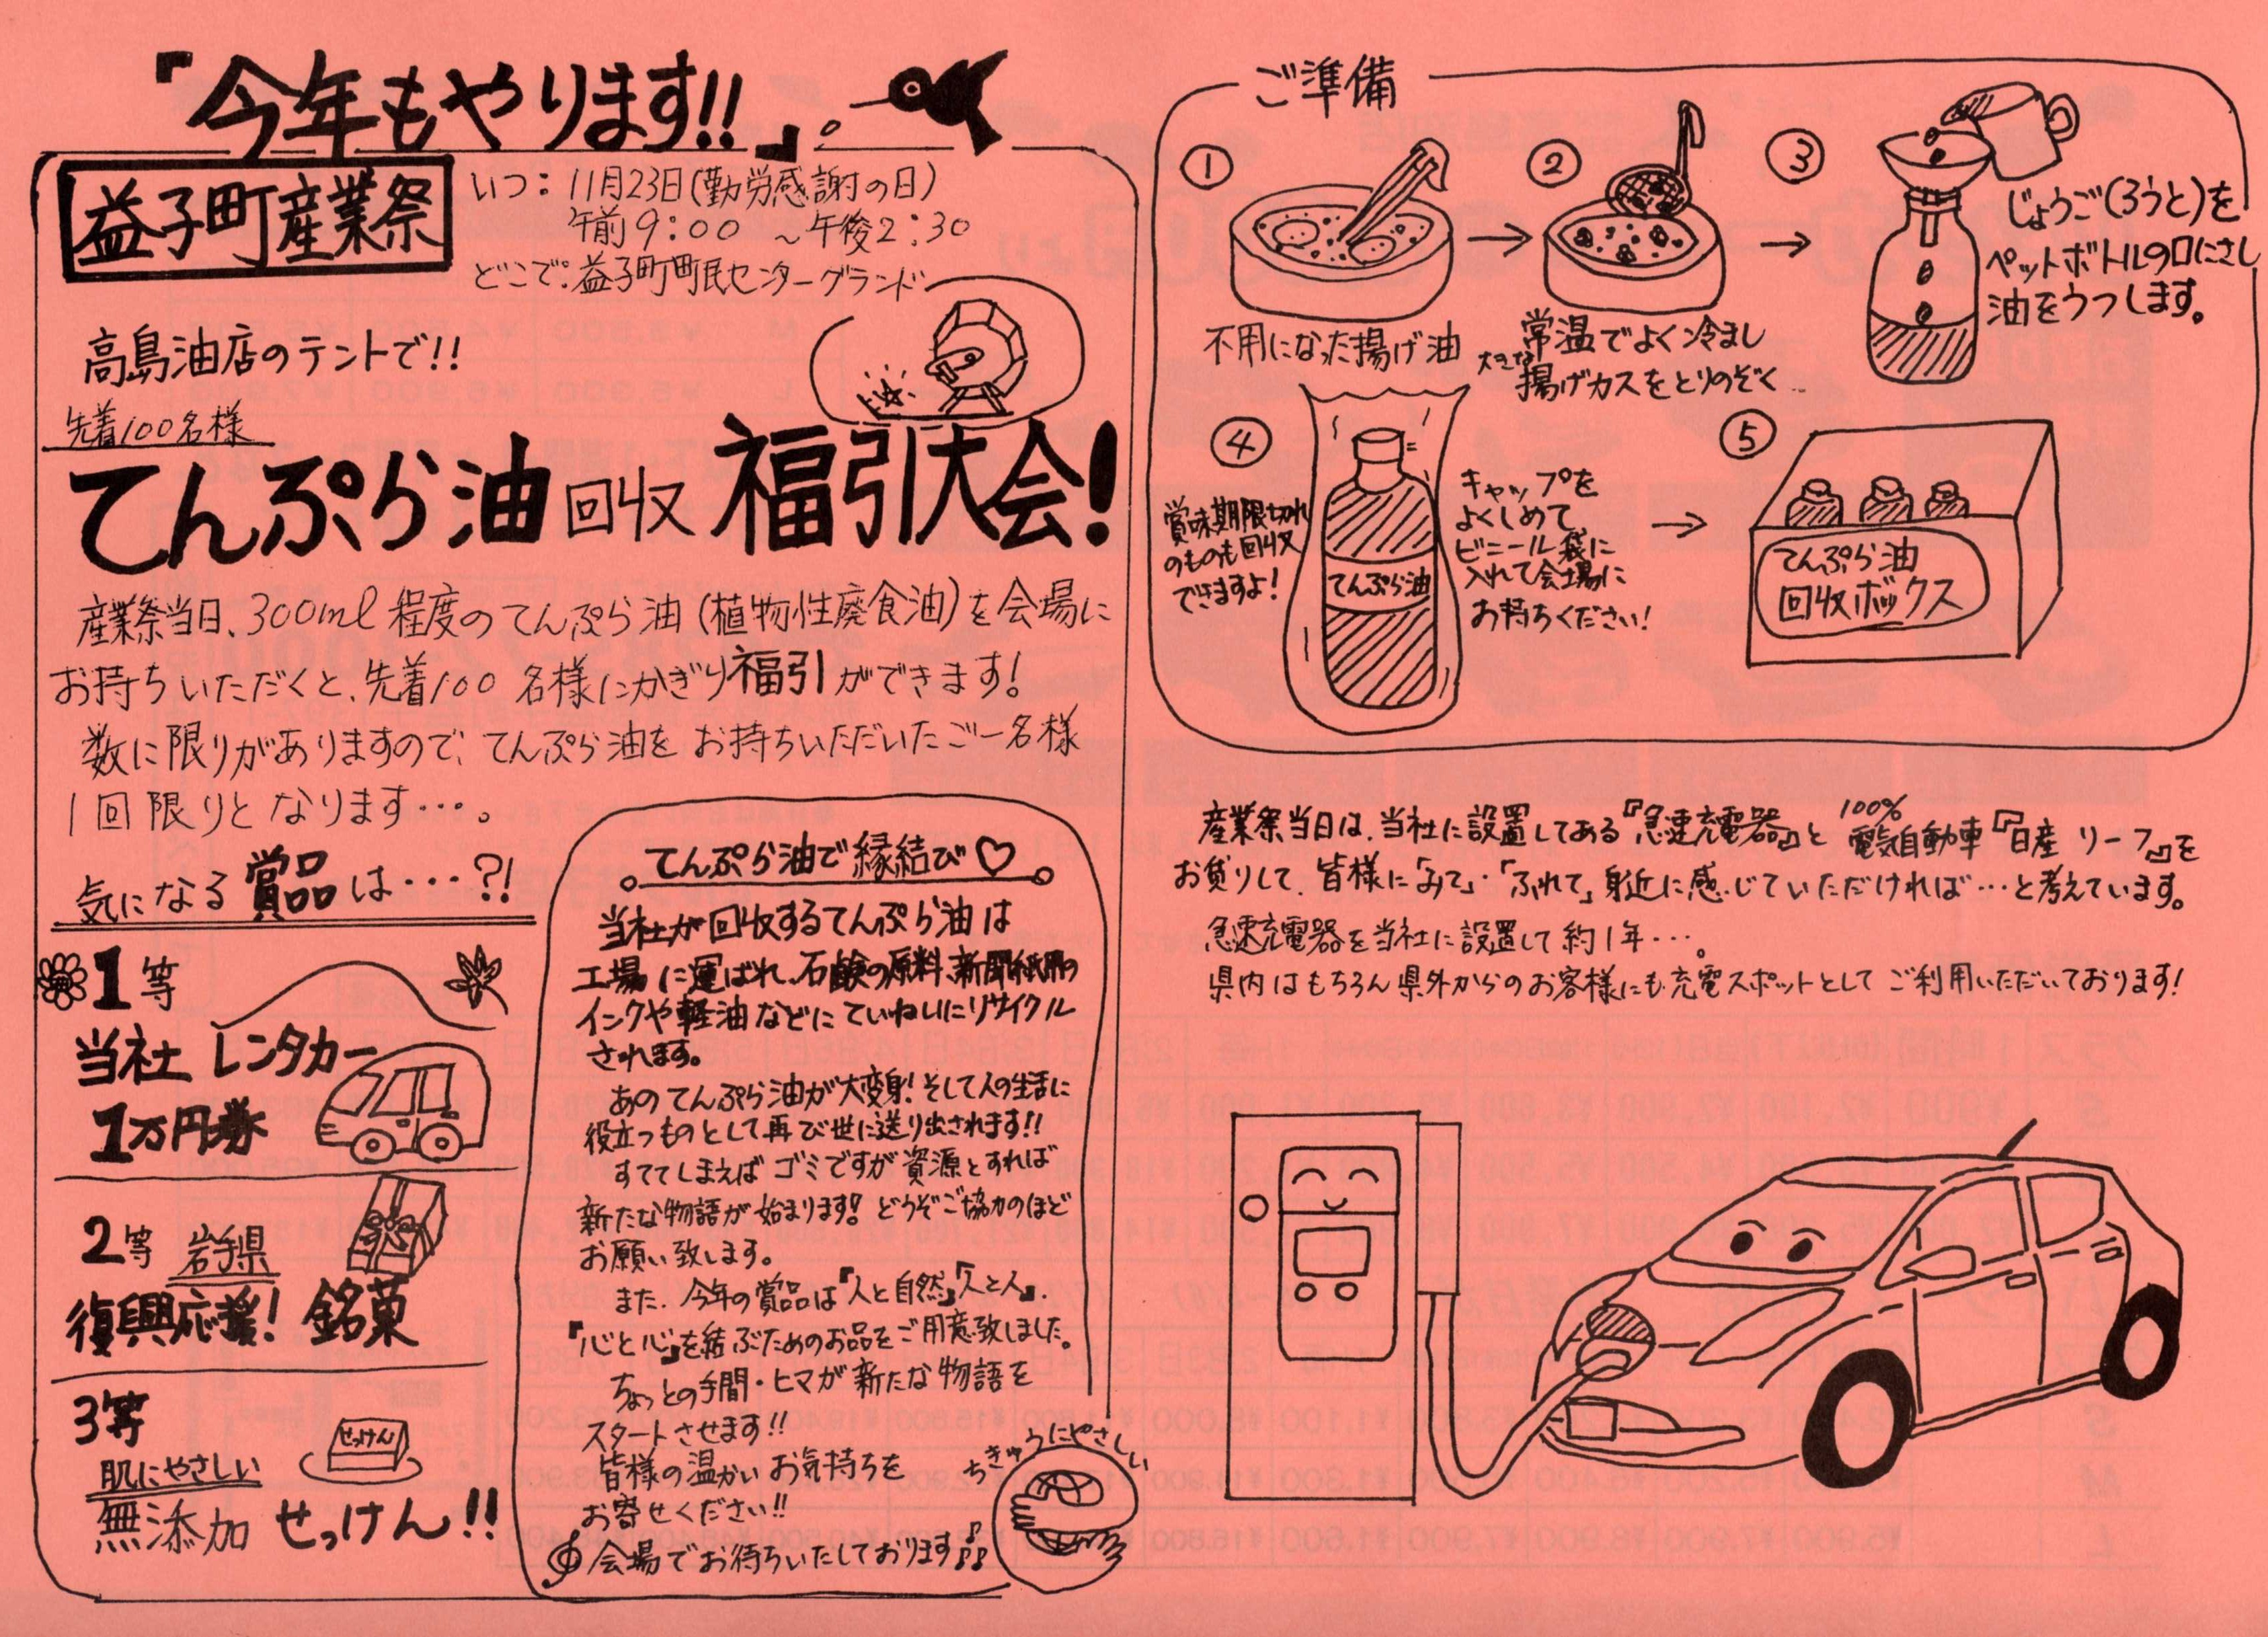 『今年もやります!!』
益子町産業祭
いつ：11月23日(勤労感謝の日)
午前9:00 ～午後2:30
どこで：益子町町民センターグランド
高島油店のテントで!!
先着100名様
てんぷら油回収 福引大会!
産業祭当日、300ml程度のてんぷら油(植物性廃食油)を会場に
お持ちいただくと、先着100名様にかぎり福引ができます!
数に限りがありますので、てんぷら油をお持ちいただいたご一名様
1回限りとなります…。
気になる賞品は…?!
1等
当社 レンタカー
1万円券
2等 岩手県
復興応援! 銘菓
3等
せっけん
肌にやさしい
無添加 せっけん!!
てんぷら油で縁結び♡
当社が回収するてんぷら油は
工場に運ばれ、石鹸の原料、新聞紙用の
インクや軽油などにていねいにリサイクル
されます。
あのてんぷら油が大変身!そして人の生活に
役立つものとして再び世に送り出されます!!
すててしまえばゴミですが資源とすれば
新たな物語が始まります!どうぞご協力のほど
お願い致します。
また、今年の賞品は『人と自然』『人と人』、
『心と心』を結ぶためのお品をご用意致しました。
ちょっとの手間・ヒマが新たな物語を
スタートさせます!!
皆様の温かいお気持ちを
お寄せください!!
会場でお待ちいたしております♪♪
ちきゅうにやさしい
ご準備
①
不用になった揚げ油
②
常温でよく冷まし
大きな揚げカスをとりのぞく
③
じょうご(ろうと)を
ペットボトルの口にさし
油をうつします。
④
賞味期限切れ
のものも回収
できますよ!
てんぷら油
キャップを
よくしめて、
ビニール袋に
入れて会場に
お持ちください!
⑤
てんぷら油
回収ボックス
産業祭当日は、当社に設置してある『急速充電器』と100%電気自動車『日産 リーフ』を
お貸りして、皆様に「みて」・「ふれて」身近に感じていただければ…と考えています。
急速充電器を当社に設置して約1年…。
県内はもちろん県外からのお客様にも充電スポットとしてご利用いただいております!